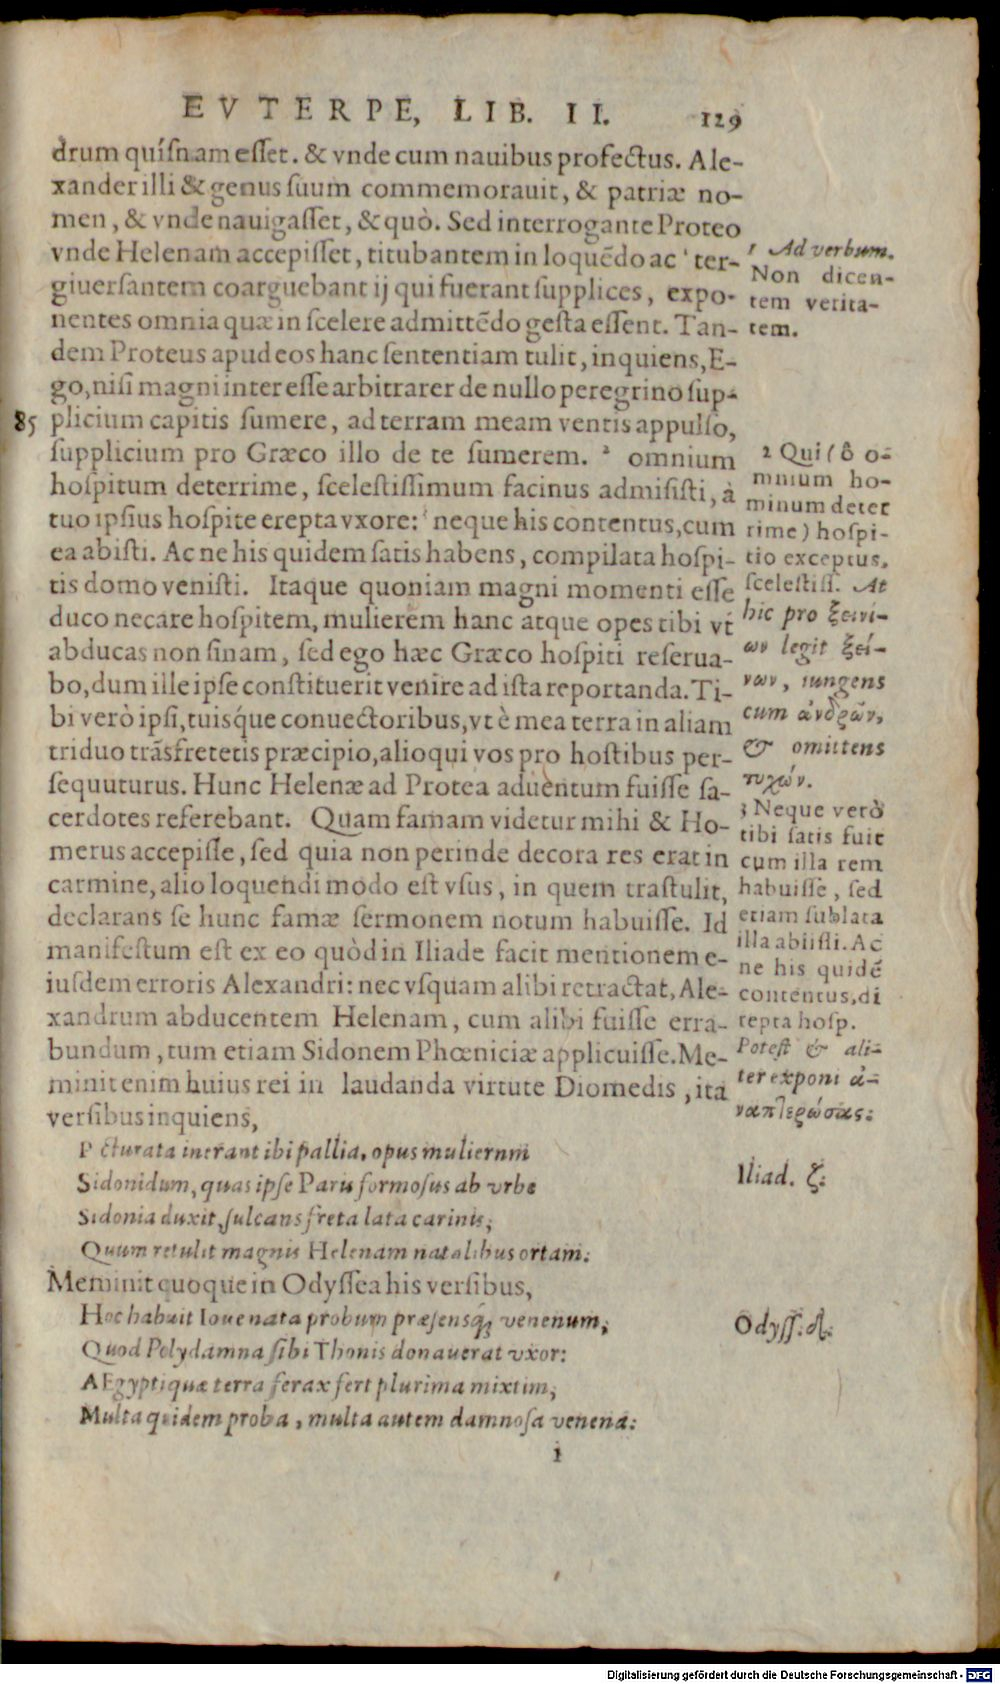 EVTERPE, LIB. II. 129
drum quíſnam eſſet. & vnde cum nauibus profectus. Ale-
xander illi & genus ſuum commemorauit, & patriæ no-
men, & vnde nauigaſſet, & quò. Sed interrogante Proteo
vnde Helenam accepiſſet, titubantem in loquẽdo ac ¹ ter-
giuerſantem coarguebant ij qui fuerant ſupplices, expo-
nentes omnia quæ in ſcelere admittẽdo geſta eſſent. Tan-
dem Proteus apud eos hanc ſententiam tulit, inquiens, E-
go, niſi magni intereſſe arbitrarer de nullo peregrino ſup-
85 plicium capitis ſumere, ad terram meam ventis appulſo,
ſupplicium pro Græco illo de te ſumerem. ² omnium
hoſpitum deterrime, ſceleſtiſſimum facinus admiſiſti, à
tuo ipſius hoſpite erepta vxore: ³ neque his contentus, cum
ea abiſti. Ac ne his quidem ſatis habens, compilata hoſpi-
tis domo veniſti. Itaque quoniam magni momenti eſſe
duco necare hoſpitem, mulierem hanc atque opes tibi vt
abducas non ſinam, ſed ego hæc Græco hoſpiti reſerua-
bo, dum ille ipſe conſtituerit venire ad iſta reportanda. Ti-
bi verò ipſi, tuiſque conuectoribus, vt è mea terra in aliam
triduo trãſfretetis præcipio, alioqui vos pro hoſtibus per-
ſequuturus. Hunc Helenæ ad Protea aduentum fuiſſe ſa-
cerdotes referebant. Quam famam videtur mihi & Ho-
merus accepiſſe, ſed quia non perinde decora res erat in
carmine, alio loquendi modo eſt vſus, in quem traſtulit,
declarans ſe hunc famæ ſermonem notum habuiſſe. Id
manifeſtum eſt ex eo quòd in Iliade facit mentionem e-
iuſdem erroris Alexandri: nec vſquam alibi retractat, Ale-
xandrum abducentem Helenam, cum alibi fuiſſe erra-
bundum, tum etiam Sidonem Phœniciæ applicuiſſe. Me-
minit enim huius rei in laudanda virtute Diomedis, ita
verſibus inquiens,
Picturata inerant ibi pallia, opus muliernm
Sidonidum, quas ipſe Paris formoſus ab vrbe
Sidonia duxit, ſulcans freta lata carinis,
Quum retulit magnis Helenam natalibus ortam:
Meminit quoque in Odyſſea his verſibus,
Hoc habuit Ioue nata probum præſensq́; venenum,
Quod Polydamna ſibi Thonis donauerat vxor:
AEgyptiquæ terra ferax fert plurima mixtim,
Multa quidem proba, multa autem damnoſa venena:
i
1 Ad verbum.
Non dicen-
tem verita-
tem.
2 Qui (ô o-
mnium ho-
minum deter
rime) hoſpi-
tio exceptus,
ſceleſtiſſ. At
hic pro ξεινί-
ων legit ξεί-
νων, iungens
cum ἀνδρῶν,
& omittens
τυχών.
3 Neque verò
tibi ſatis fuit
cum illa rem
habuiſſe, ſed
etiam ſublata
illa abiiſti. Ac
ne his quidẽ
contentus, di
repta hoſp.
Poteſt & ali-
ter exponi ἀ-
ναπτερώσας:
Iliad. ζ.
Odyſſ. δ.
Digitalisierung gefördert durch die Deutsche Forschungsgemeinschaft - DFG